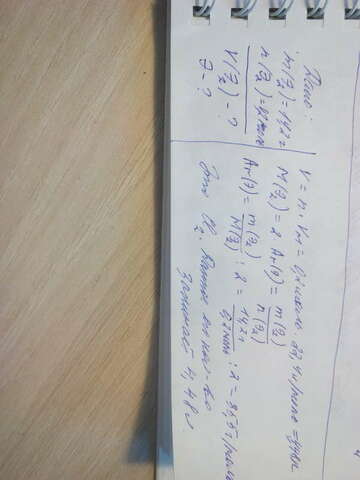 Дано:
m(Э₂) = 14,2 г
n(Э₂) = 0,2 моль
V(Э₂) - ?
Э - ?
V = n · Vm = 0,2 моль · 22,4 л/моль = 4,48 л
M(Э₂) = 2 Ar(Э) = m(Э₂) / n(Э₂)
Ar(Э) = m(Э₂) / M(Э₂) : 2 = 14,2 г / 0,2 моль : 2 = 35,5 г/моль
Это Cl₂. Данное его кол-во
занимает 4,48 л.